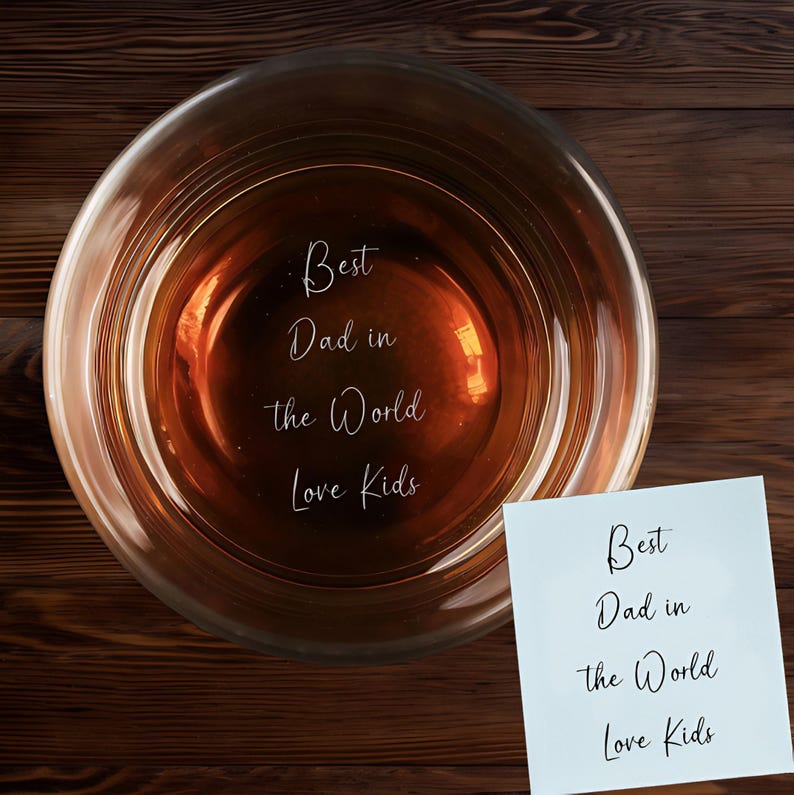 Best
Dad in
the World
Love Kids
Best
Dad in
the World
Love Kids